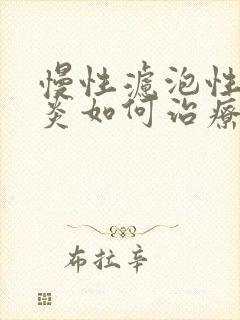 慢性濾泡性
炎如何治療
布拉辛